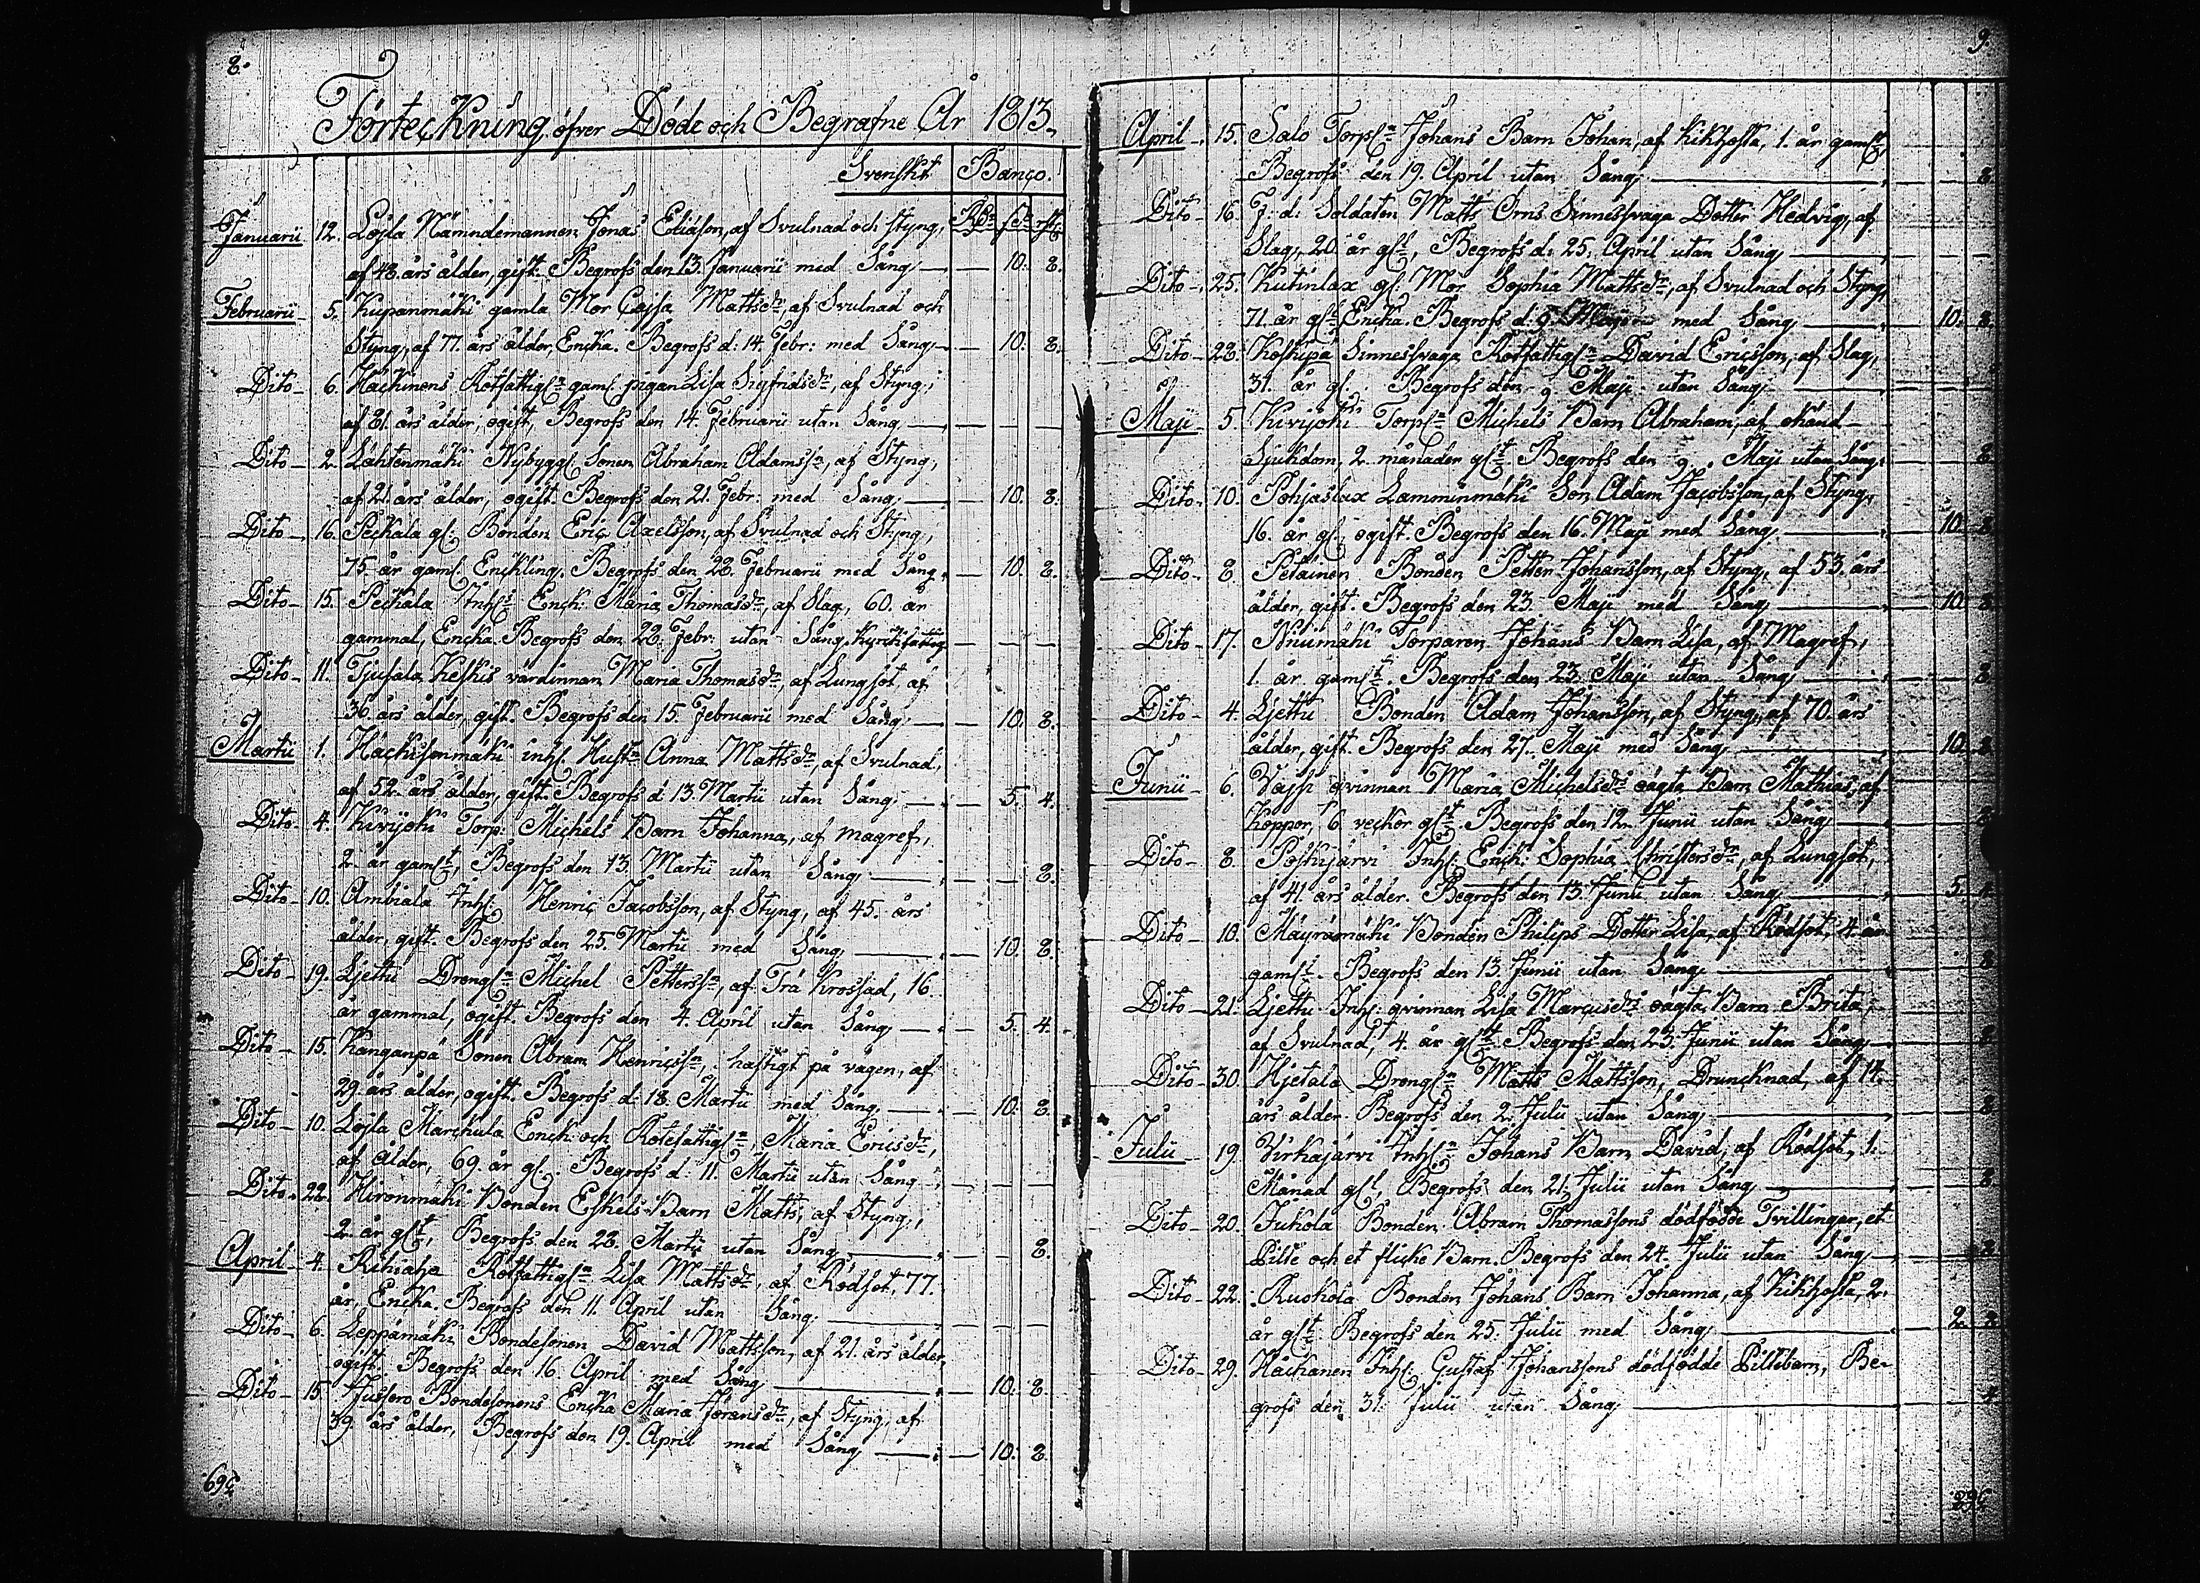 8.
Förteckning öfver Döde och Begrafne År 1813.
Svenskt Banco.
Januarii 12. Löjla Nämndemannen Jonas Eliasson, af Svulnad och styng, Rdr sk rst
af 48. års ålder, gift. Begrofs den 13. Januarii med Sång. — 10. 8.
Februarii 5. Kupanmäki gamla Mor Cajsa Mattsdr, af Svulnad och
Styng, af 77. års ålder, Encka. Begrofs d: 14. Febr: med Sång. — 10. 8.
Dito 6. Häckinens Rotfattigh gaml. pigan Lisa Sigfridsdr, af Styng,
af 81. års ålder, ogift, Begrofs den 14. Februarii utan Sång.
Dito 2. Lahtenmäki Nybygg. Sonen Abraham Adamssn, af Styng,
af 21. års ålder, ogift. Begrofs den 21. Febr: med Sång. — 10. 8.
Dito 16. Peckala gl. Bonden Eric Axelsson, af Svulnad och Styng,
75 år gaml. Enckling. Begrofs den 28. Februarii med Sång. — 10. 8.
Dito 15. Peckala Inhs Enck: Maria Thomasdr, af Slag, 60. år
gammal, Encka. Begrofs den 28. Febr: utan Sång.
Dito 11. Tjusala Keskis värdinnan Maria Thomasdr, af Lungsot, af
36. års ålder, gift. Begrofs den 15. Februarii med Sång. — 10. 8.
Martii 1. Häckisenmäki inhs. Hustn Anna Mattsdr, af Svulnad,
af 52. års ålder, gift. Begrofs d 13. Martii utan Sång. — 5. 4.
Dito 4. Kivijoki Torp: Michels Barn Johanna, af magref,
2. år gamlt, Begrofs den 13. Martii utan Sång. — 8.
Dito 10. Ambiala Inhs. Henric Jacobsson, af Styng, af 45. års
ålder, gift. Begrofs den 25. Martii med Sång — 10. 8.
Dito 19. Ljettu Drengn Michel Petterssn, af Trä Krossad, 16
år gammal, ogift. Begrofs den 4. April utan Sång — 5. 4.
Dito 15. Kanganpä Sonen Abram Henricssn, hastigt på vägen, af
29. års ålder, ogift. Begrofs d: 18 Martii med Sång. — 10. 8.
Dito 10. Löjla Marckula Enck: och Rotefattign, Maria Ericsdr,
af ålder, 69. år gl. Begrofs d: 11. Martii utan Sång
Dito 22. Hironmäki Bonden Eskels Barn Matts, af Styng,
2. år glt, Begrofs den 28. Martii utan Sång — 8.
April 4. Rihiaha Rotfattign Lisa Mattsdr, af Rödsot, 77.
år, Encka. Begrofs den 11. April utan Sång.
Dito 6. Leppämäki Bondesonen David Mattsson, af 21. års ålder,
ogift. Begrofs den 16. April med Sång — 10. 8.
Dito 15 Jussero Bondesonens Encka Maria Joransdr, af Styng, af
39. års ålder, Begrofs den 19. April med Sång — 10. 8.
9.
April 15. Salo Torpn Johans Barn Johan, af Kikhosta, 1. år gamlt,
Begrofs den 19. April utan Sång — 8.
Dito 16. F: d: Soldaten Matts Örns Sinnessvaga Dotter Hedvig, af
Slag, 20 år glt, Begrofs d: 25. April utan Sång
Dito 25. Kutinlax gl. Mor Sophia Mattsdr, af Svulnad och Styng,
71. år gl. Encka. Begrofs d: 9. med Sång — 10. 8.
Dito 28. Koskipä Sinnessvaga Rotfattign David Ericsson, af Slag,
31. år gl. Begrofs den 9. Maji utan Sång
Maji 5. Kivijoki Torpn Michels Barn Abraham, af okänd
Sjukdom, 2. månader glt Begrofs den 9. Maji utan Sång. 8
Dito 10. Pohjaslax Lamminmäki Son Adam Jacobsson, af Styng,
16. år gl. ogift. Begrofs den 16. Maji med Sång — 10. 8
Dito 8. Petainen Bonden Petter Johansson, af Styng, af 53. års
ålder, gift. Begrofs den 23. Maji med Sång — 10. 8
Dito 17. Niiumäki Torparen Johans Barn Lisa, af Magref,
1. år gamlt. Begrofs den 23. Maji utan Sång — 8
Dito 4. Ljettu Bonden Adam Johansson, af Styng, af 70. års
ålder, gift. Begrofs den 27. Maji med Sång — 10. 8
Junii 6. Vajsi qvinnan Maria Michelsdrs oägta Barn Mathias, af
Koppor, 6. veckor glt. Begrofs den 12. Junii utan Sång — 8
Dito 8. Poskijärvi Inhs. Enck: Sophia Christersdr, af Lungsot,
af 41. års ålder. Begrofs den 13. Junii utan Sång — 5. 4
Dito 10. Mäyrämäki Bonden Philips Dotter Lisa, af Rödsot, 4. år
gamlt. Begrofs den 13. Junii utan Sång. — 8
Dito 21. Ljettu Inhs: qvinnan Lisa Marcusdrs oägta Barn Brita,
af Svulnad, 4. år glt Begrofs den 23. Junii utan Sång — 8
Dito 30. Hjetala Drengn Matts Mattsson, Druncknad, af 14.
års ålder. Begrofs den 2. Julii utan Sång — 8
Julii 19. Virkajärvi Inhsn Johans Barn David, af Rödsot, 1.
Månad glt, Begrofs den 21. Julii utan Sång — 8
Dito 20. Jukola Bonden Abram Thomassons dödfödde Tvillingar, et
Pilte och et flicke Barn. Begrofs den 24. Julii utan Sång — 8
Dito 22. Ruokola Bonden Johans Barn Johanna, af Kikhosta, 2.
år glt. Begrofs den 25. Julii med Sång — 2. 8
Dito 29. Häckanen Inhs: Gustaf Johanssons dödfödde Piltebarn, Be-
grofs den 31. Julii utan Sång — 4